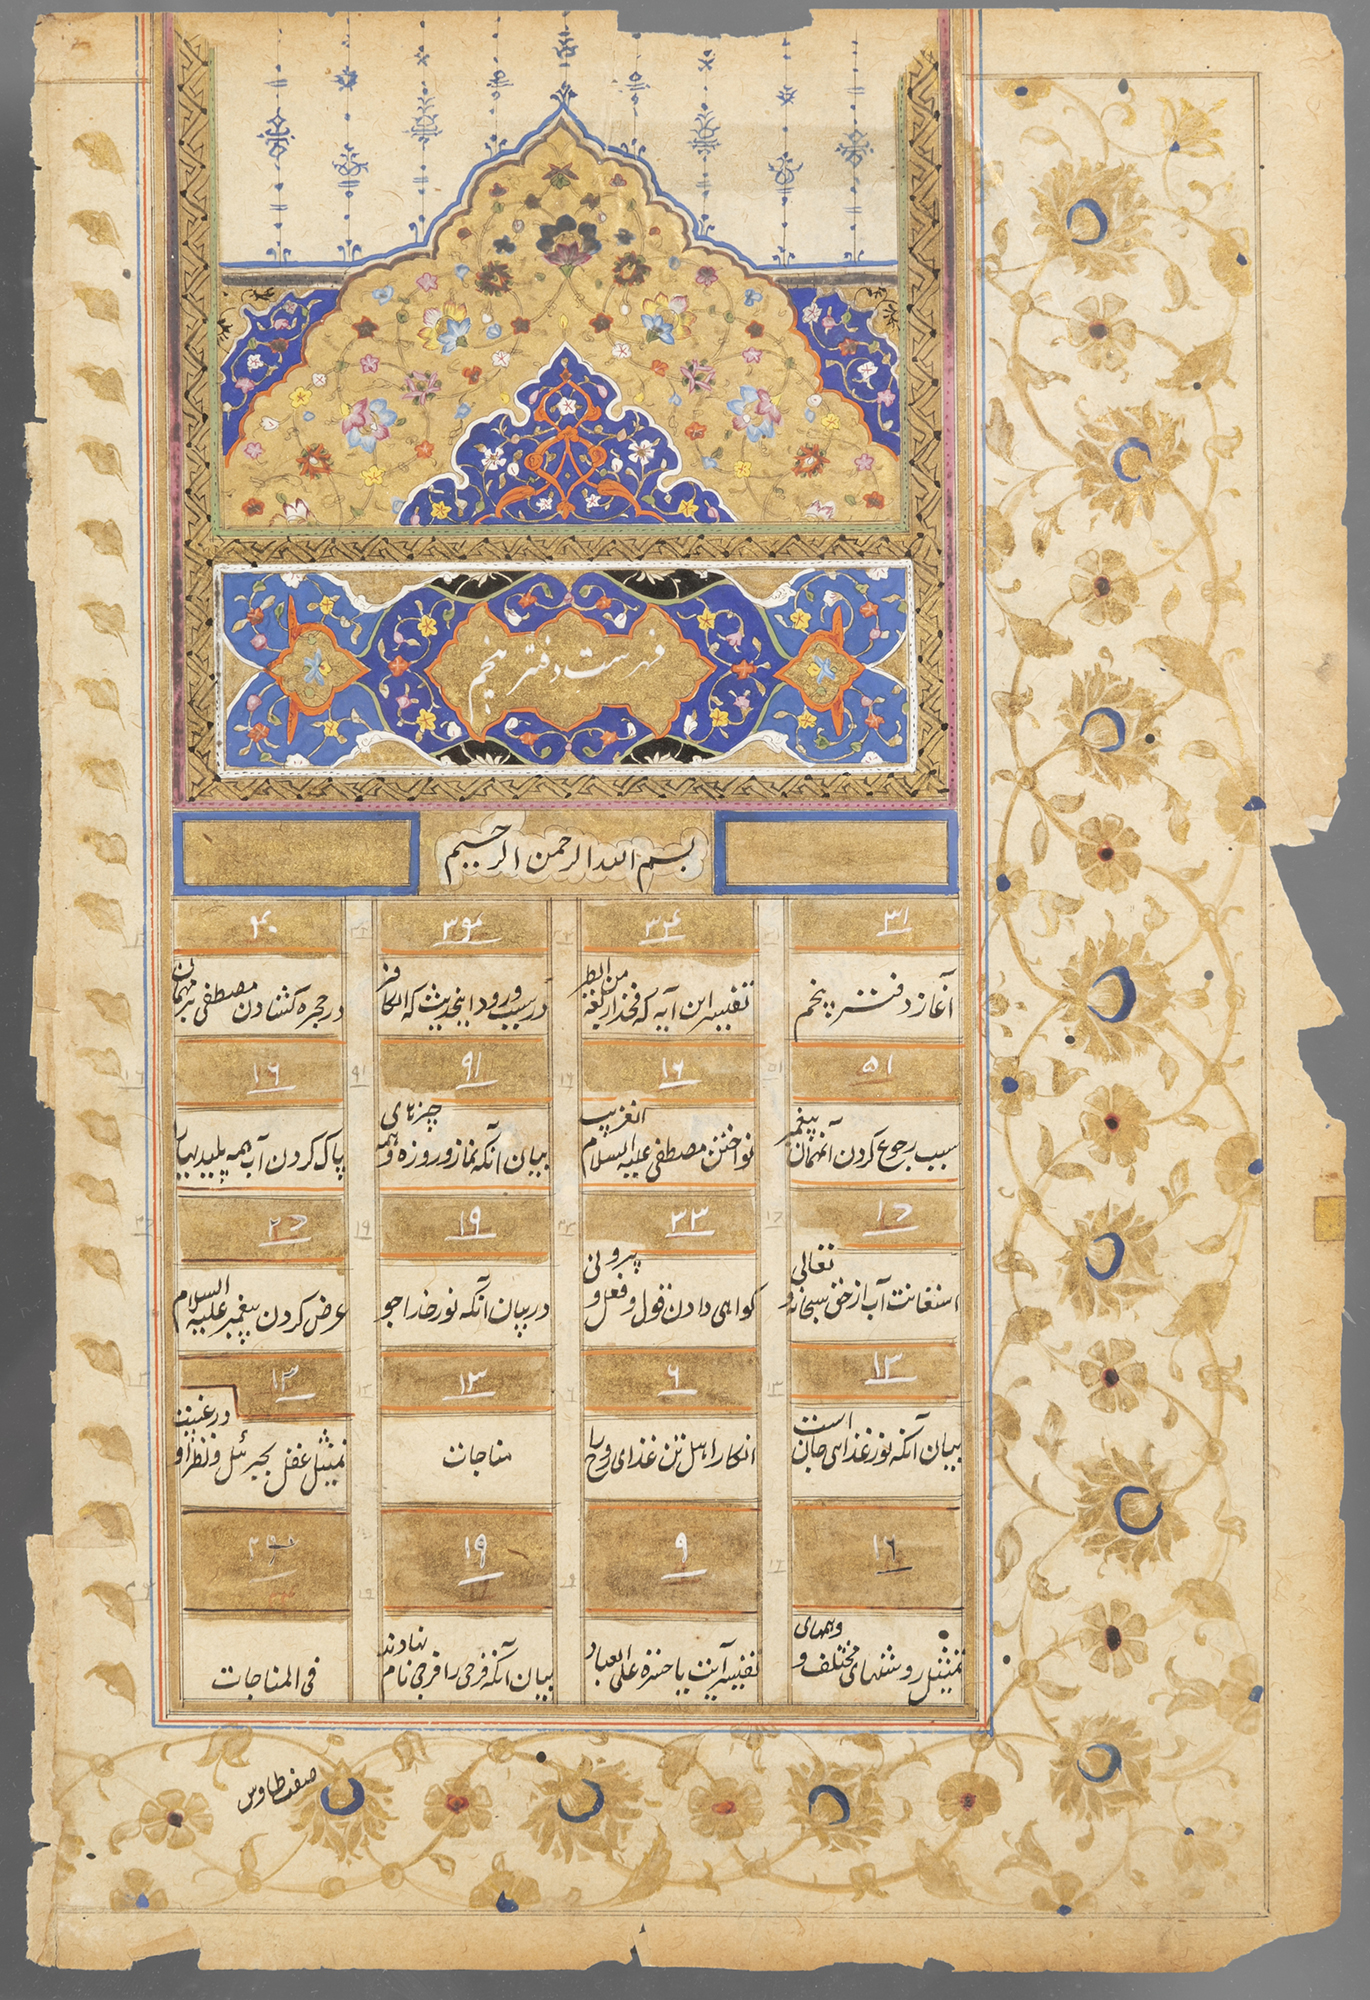 فهرست دفتر پنجم
بسم الله الرحمن الرحیم
۳۱ ۳۴ ۳۹ ۴۰
آغاز دفتر پنجم
تفسیر این آیه که فخذ اربعة من الطیر
در سبب ورود اینحدیث که الکافر
در حجره گشادن مصطفی بر مهمان
۵۱ ۱۶ ۹۱ ۱۶
سبب رجوع کردن آنمهمان پیغمبر
نواختن مصطفی علیه السلام انعریب
بیان آنکه نماز و روزه و همه چیزهای
پاک کردن آب همه پلیدیها را
۱۶ ۳۳ ۱۹ ۲۶
استعانت آب از حق سبحانه و تعالی
گواهی دادن قول و فعل و بیرونی
در بیان آنکه نور خدا را جو
عرض کردن پیغمبر علیه السلام
۱۳ ۶ ۱۳ ۱۳
بیان آنکه نور غذاهی جان است
انکار اهل تن غذای روح را
مناجات
تمثیل عقل بجبرئیل و نظر او در غیبت
۱۶ ۹ ۱۹
تمثیل روشهای مختلف و همهای
تفسیر آیت یا حسرة علی العباد
بیان آنکه فرجی را فرجی نام نهادند
فی المناجات
صفت طاوس